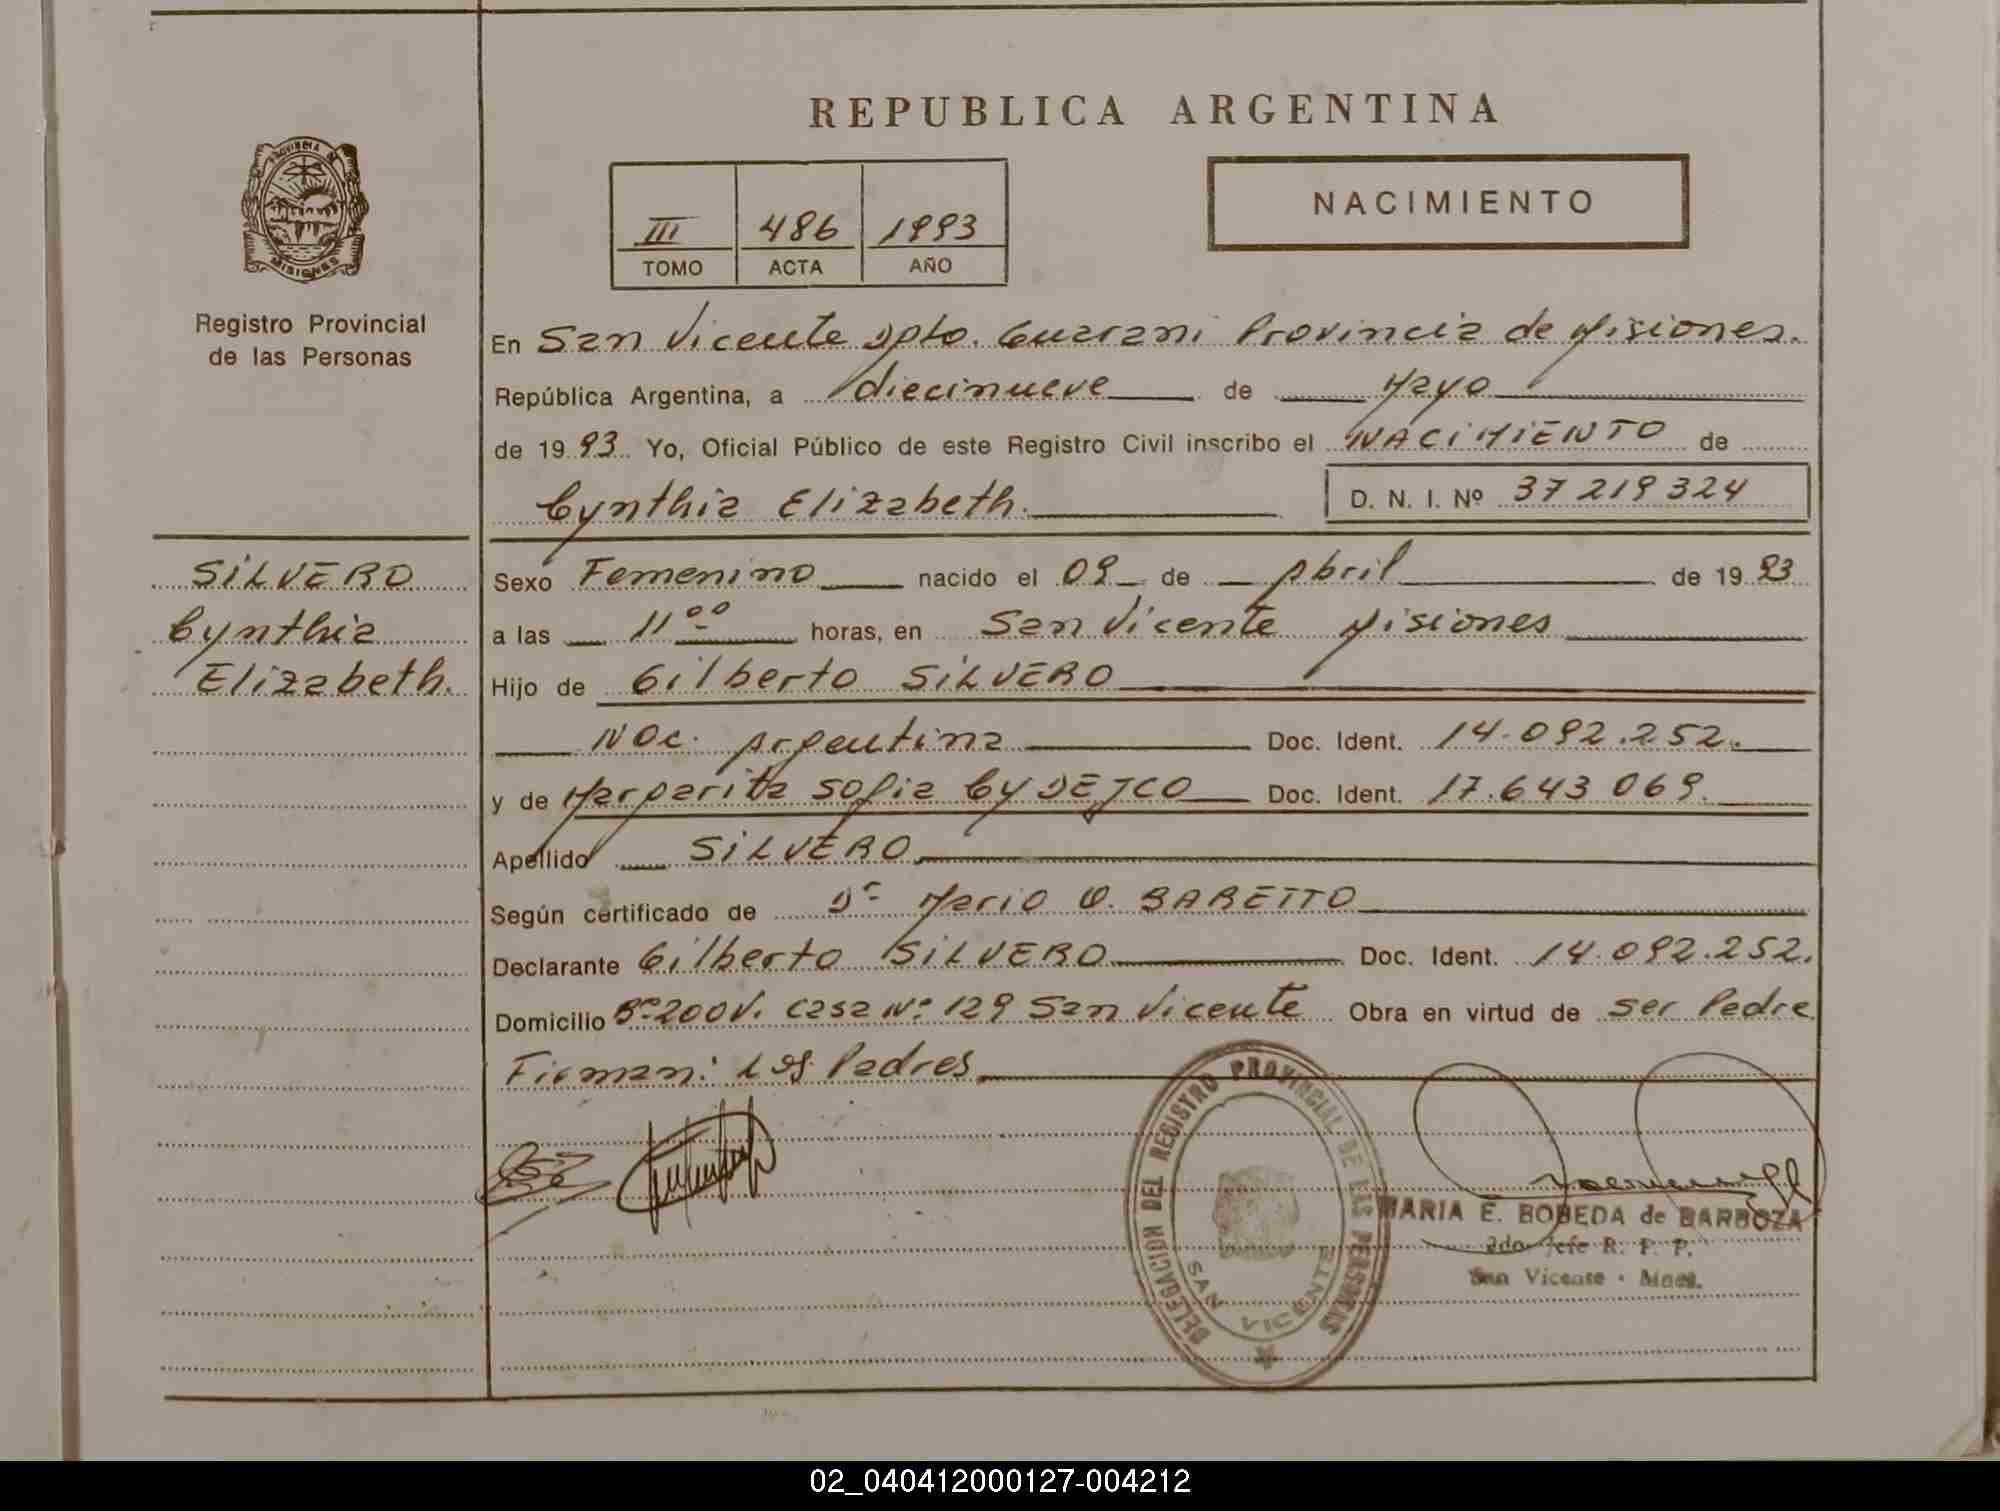 REPUBLICA ARGENTINA
PROVINCIA DE
MISIONES
Registro Provincial
de las Personas
III 486 1993
TOMO ACTA AÑO
NACIMIENTO
En San Vicente Dpto. Guarani Provincia de Misiones.
República Argentina, a diecinueve de Mayo
de 1993 Yo, Oficial Público de este Registro Civil inscribo el NACIMIENTO de
Cynthia Elizabeth. D. N. I. Nº 37 219 324
SILVERO
Cynthia
Elizabeth.
Sexo Femenino nacido el 09 de Abril de 1993
a las 11°° horas, en San Vicente Misiones
Hijo de Gilberto SILVERO
Nac. Argentina Doc. Ident. 14.092.252.
y de Margarita Sofia CyDEJCO Doc. Ident. 17.643 069.
Apellido SILVERO
Según certificado de Dr Mario O. BARETTO
Declarante Gilberto SILVERO Doc. Ident. 14.092.252.
Domicilio Bº 200V. Casa Nº 129 San Vicente Obra en virtud de Ser Padre
Firman: Los Padres
DELEGACION DEL REGISTRO PROVINCIAL DE LAS PERSONAS
SAN VICENTE
MARIA E. BOBEDA de BARBOZA
2do Jefe R. P. P.
San Vicente - Mnes.
02_040412000127-004212